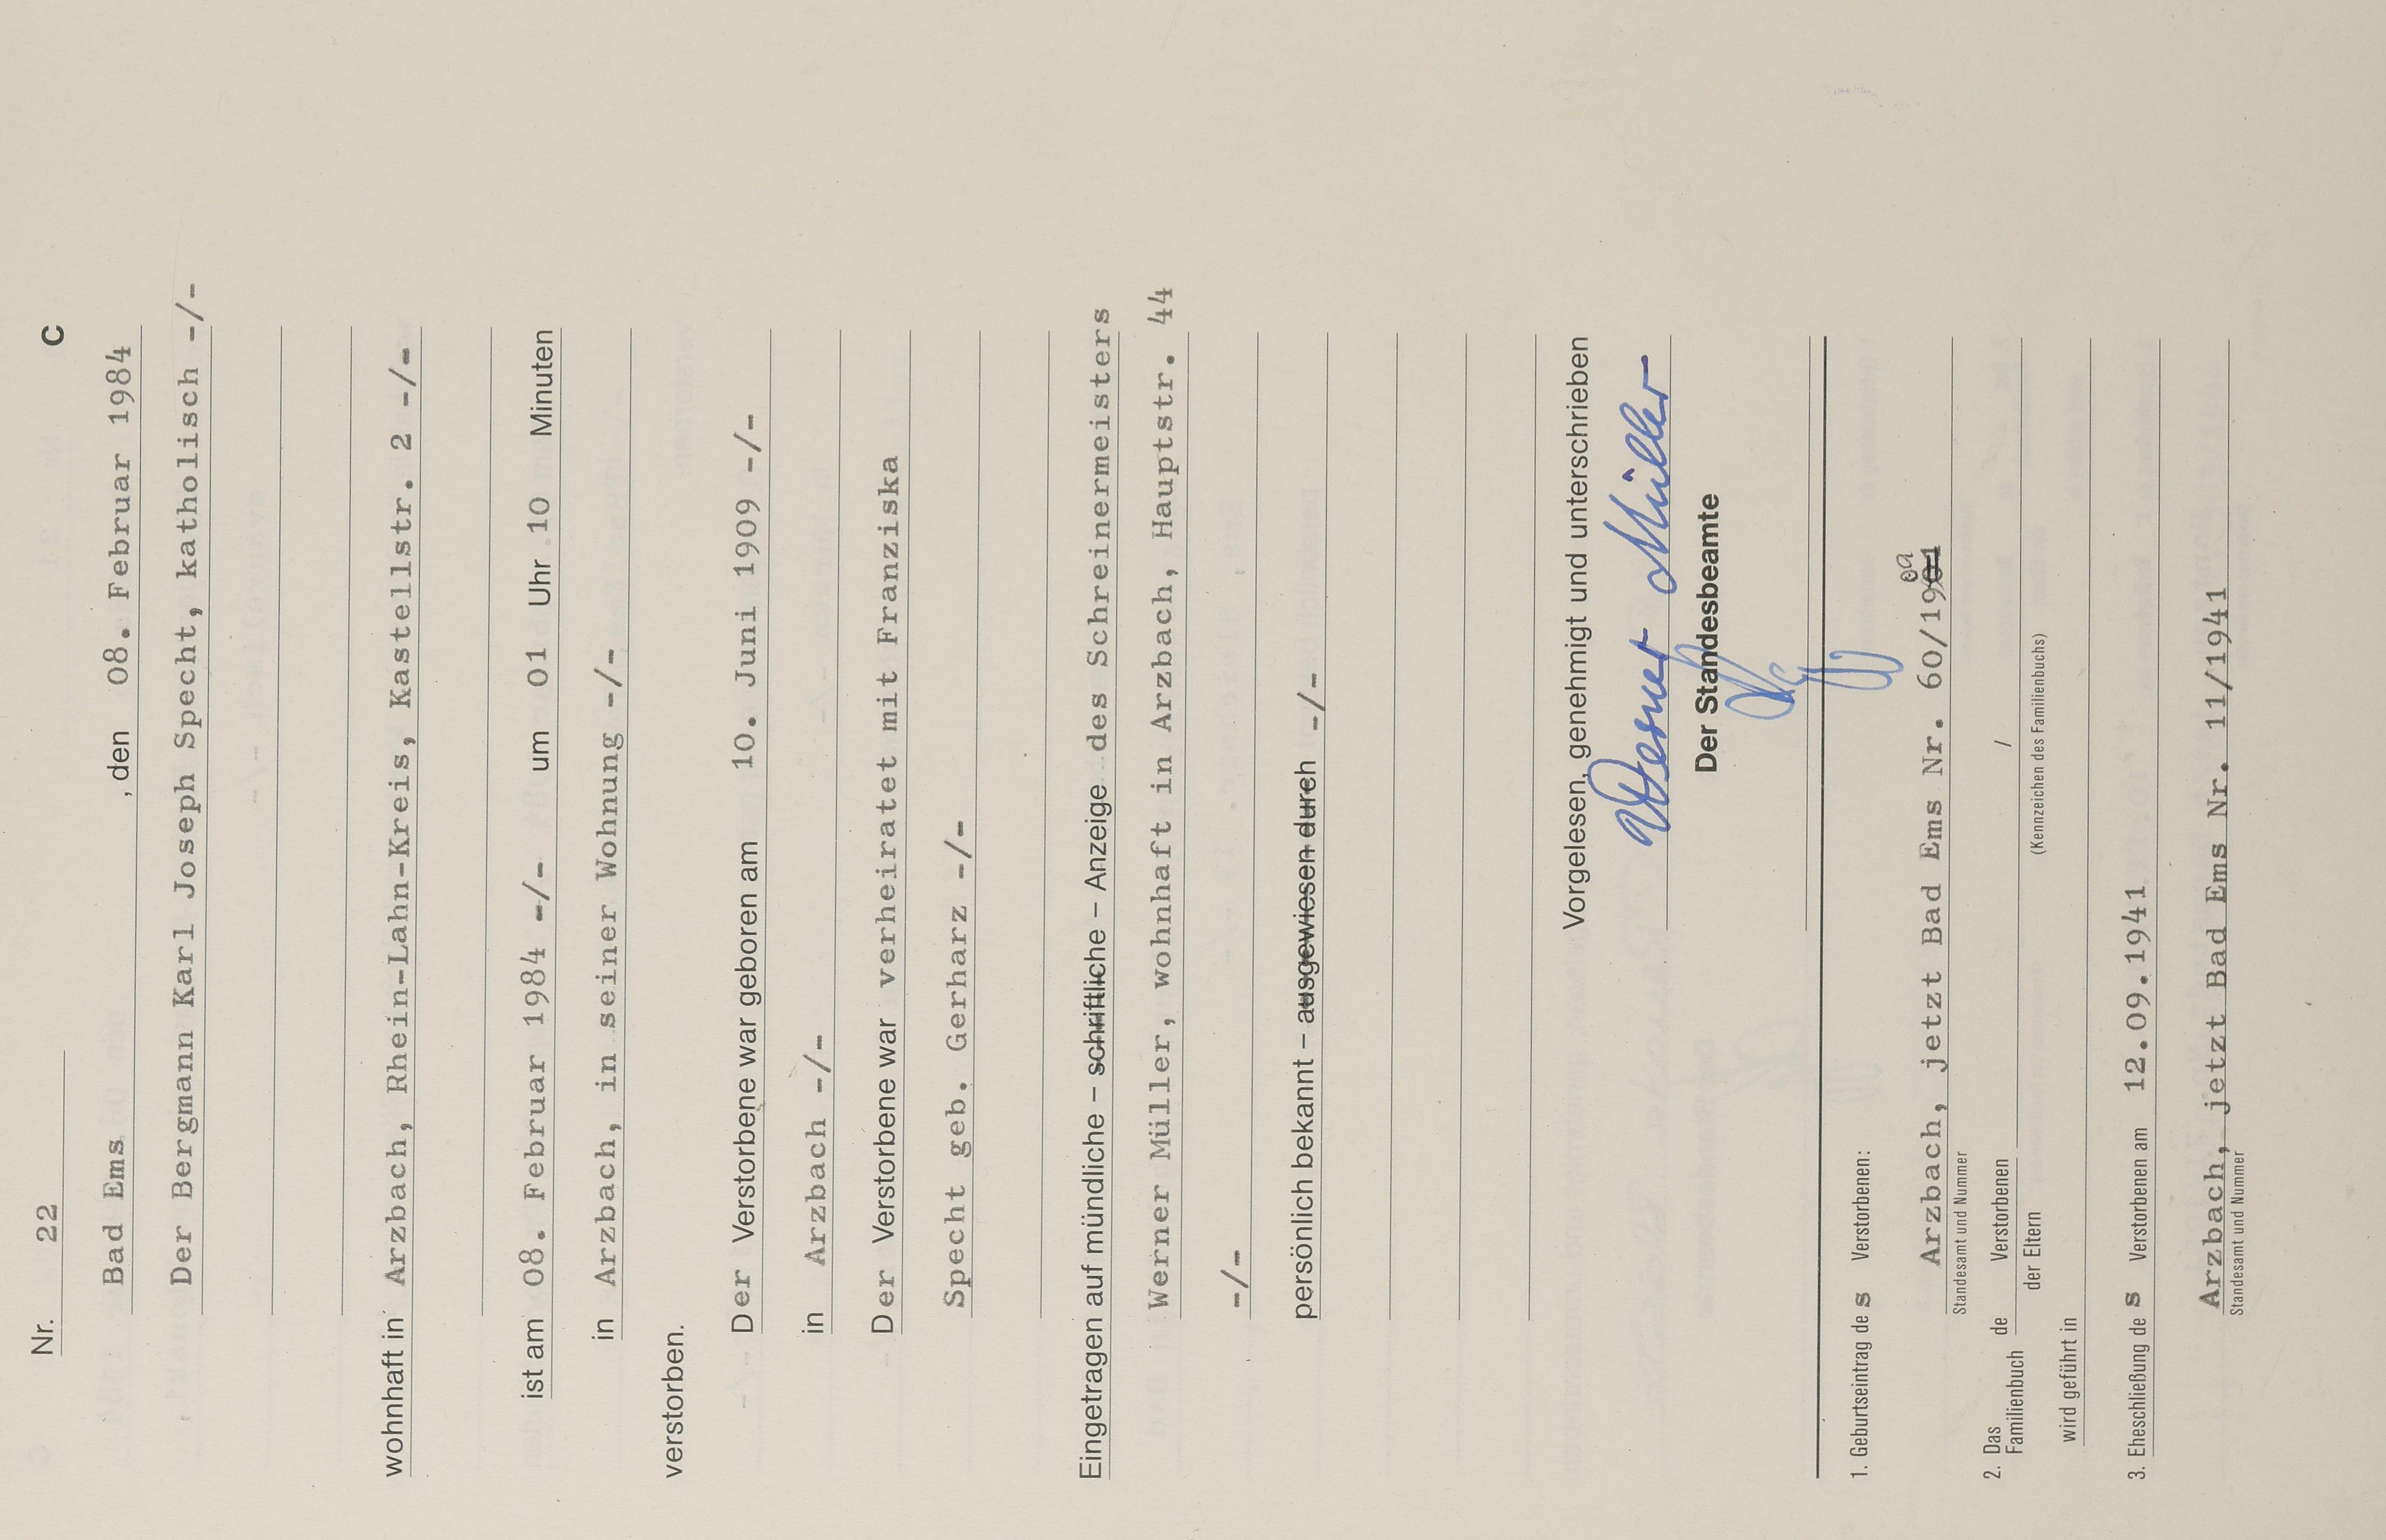 Nr. 22 C
Bad Ems , den 08. Februar 1984
Der Bergmann Karl Joseph Specht, katholisch -/-
wohnhaft in Arzbach, Rhein-Lahn-Kreis, Kastellstr. 2 -/-
ist am 08. Februar 1984 -/- um 01 Uhr 10 Minuten
in Arzbach, in seiner Wohnung -/-
verstorben.
Der Verstorbene war geboren am 10. Juni 1909 -/-
in Arzbach -/-
Der Verstorbene war verheiratet mit Franziska
Specht geb. Gerharz -/-
Eingetragen auf mündliche – schriftliche – Anzeige des Schreinermeisters
Werner Müller, wohnhaft in Arzbach, Hauptstr. 44
-/-
persönlich bekannt – ausgewiesen durch -/-
Vorgelesen, genehmigt und unterschrieben
Werner Müller
Der Standesbeamte
1. Geburtseintrag des Verstorbenen:
09
Arzbach, jetzt Bad Ems Nr. 60/1901
Standesamt und Nummer
2. Das Familienbuch de Verstorbenen /
der Eltern (Kennzeichen des Familienbuchs)
wird geführt in
3. Eheschließung des Verstorbenen am 12.09.1941
Arzbach, jetzt Bad Ems Nr. 11/1941
Standesamt und Nummer